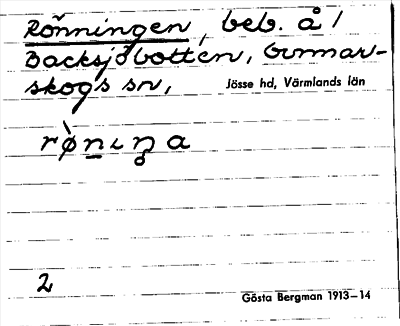 Rönningen, beb. å /
Backsjöbotten, Gunnar-
skogs sn, Jösse hd, Värmlands län
rø̀nıŋa
2
Gösta Bergman 1913–14